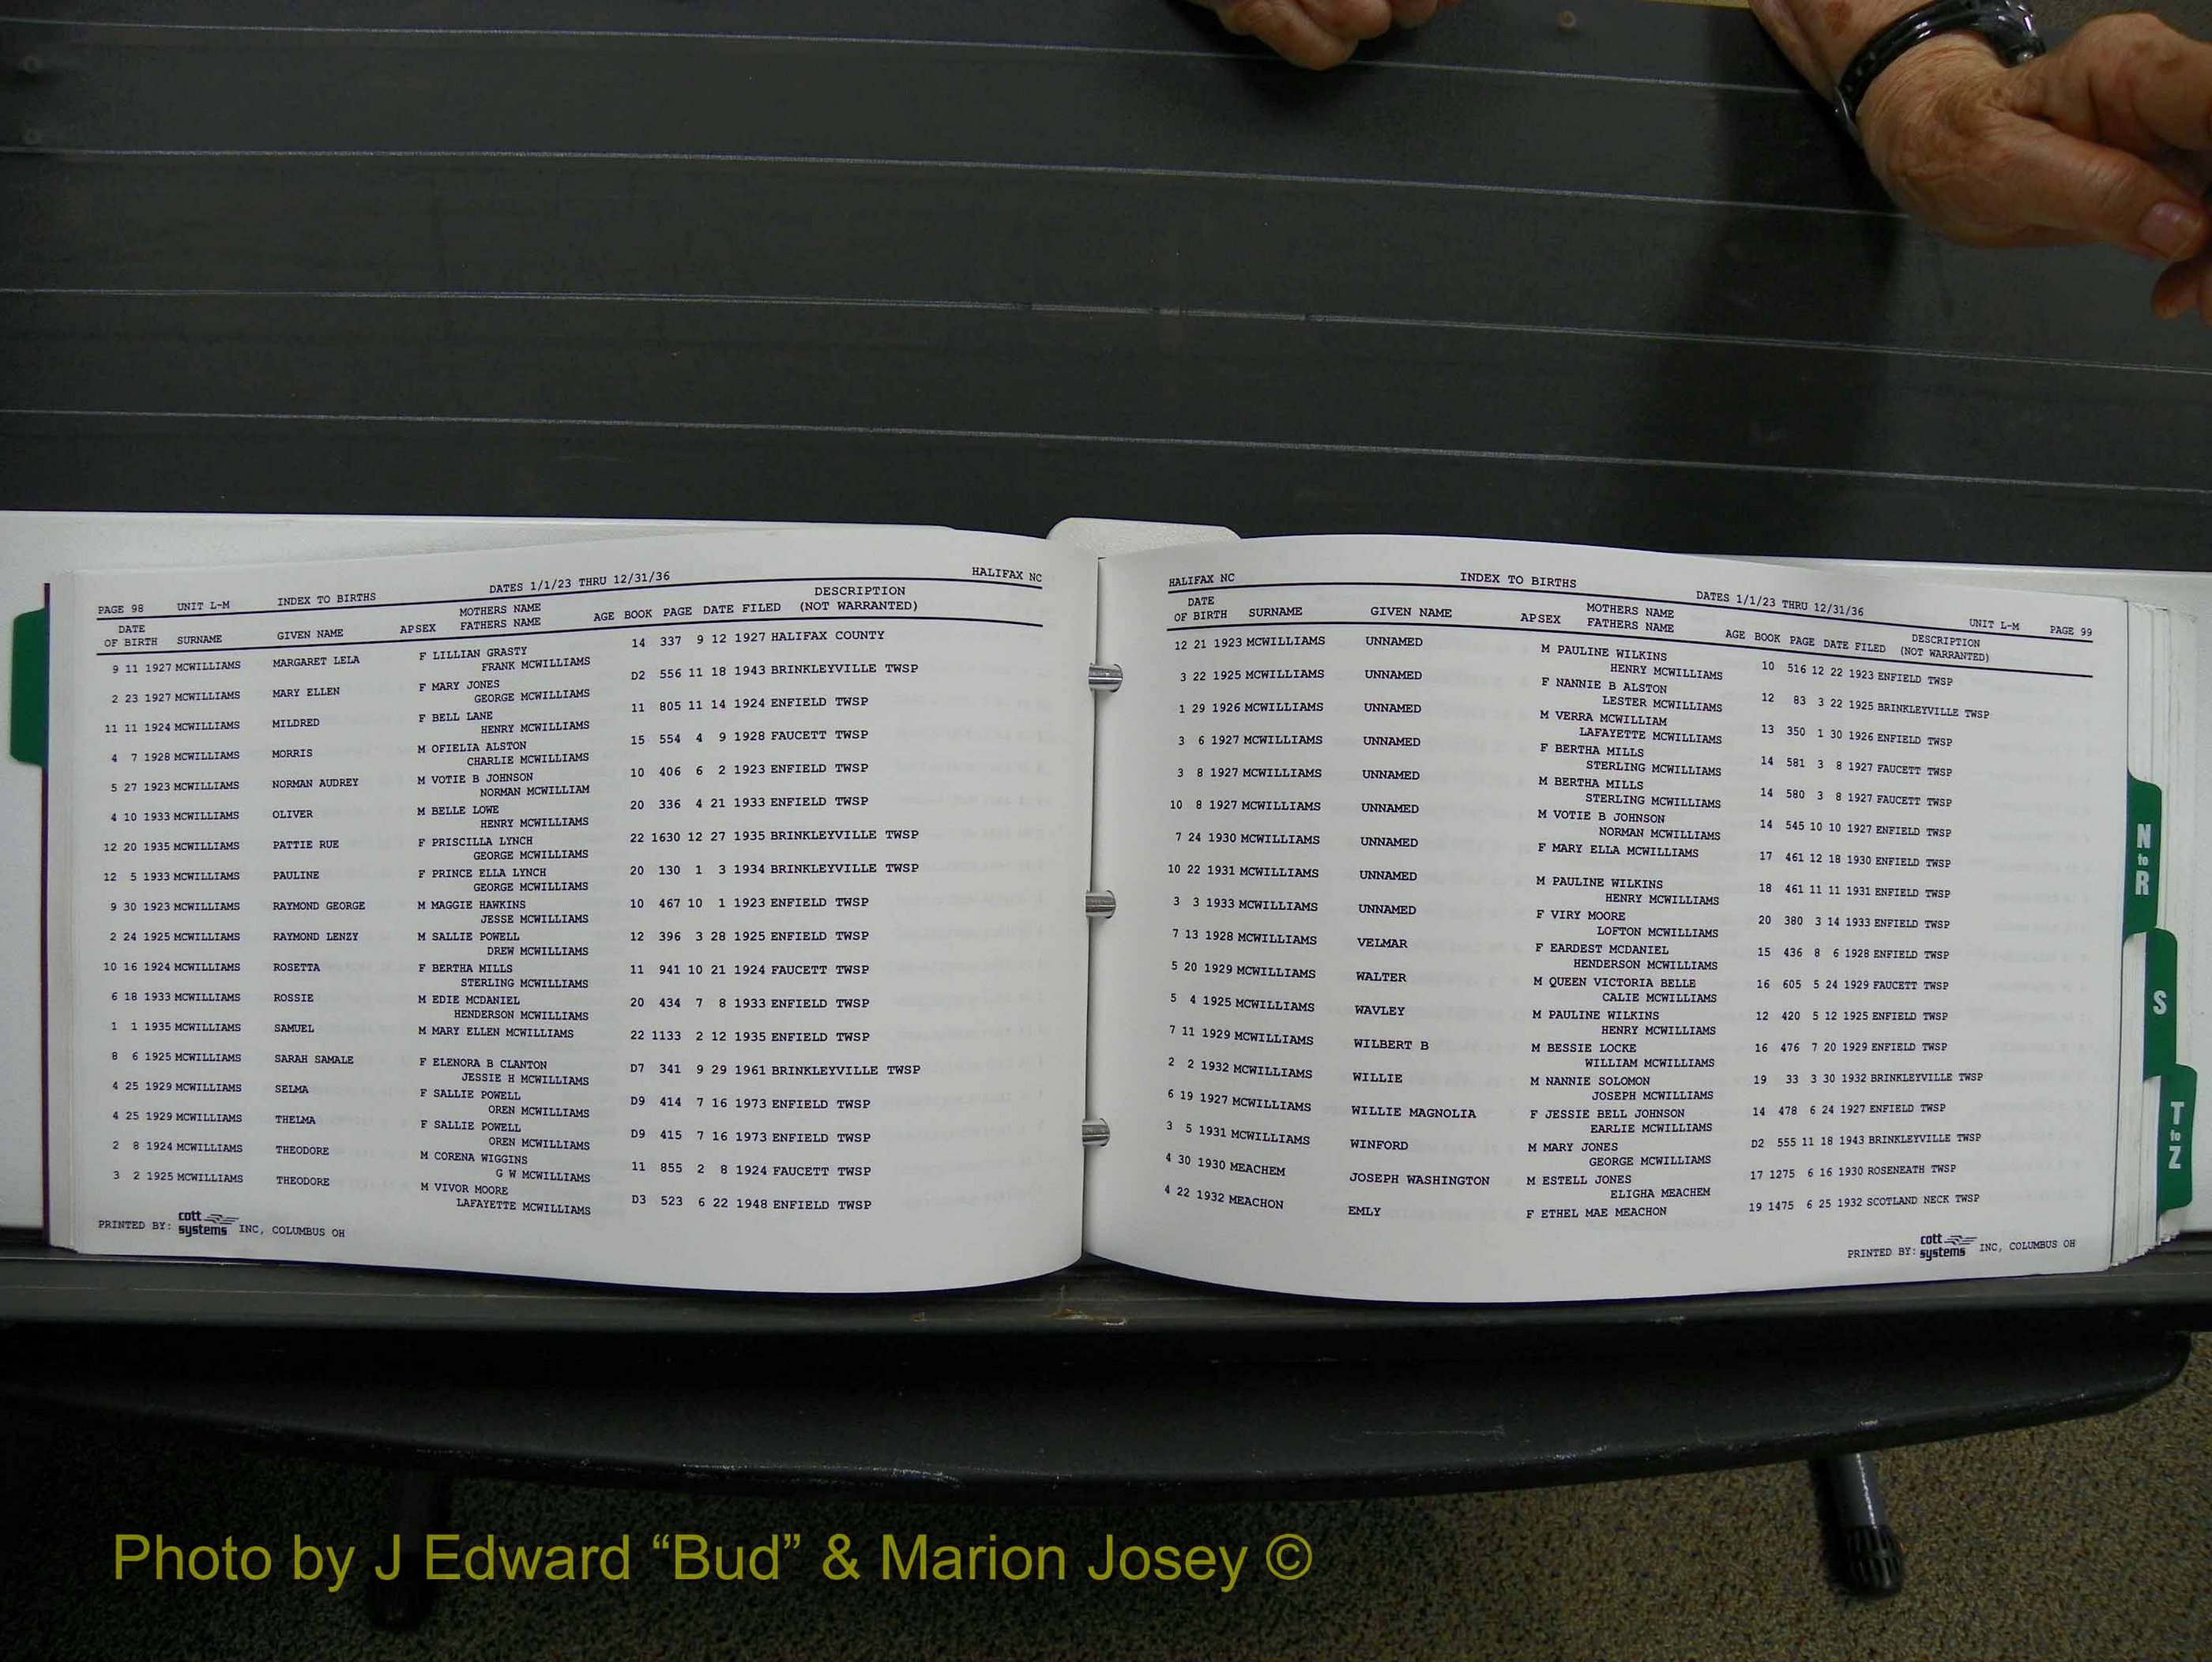 PAGE 98 UNIT L-M INDEX TO BIRTHS DATES 1/1/23 THRU 12/31/36 HALIFAX NC
DATE OF BIRTH SURNAME GIVEN NAME AP SEX MOTHERS NAME FATHERS NAME AGE BOOK PAGE DATE FILED DESCRIPTION (NOT WARRANTED)
9 11 1927 MCWILLIAMS MARGARET LELA F LILLIAN GRASTY 14 337 9 12 1927 HALIFAX COUNTY
FRANK MCWILLIAMS
2 23 1927 MCWILLIAMS MARY ELLEN F MARY JONES D2 556 11 18 1943 BRINKLEYVILLE TWSP
GEORGE MCWILLIAMS
11 11 1924 MCWILLIAMS MILDRED F BELL LANE 11 805 11 14 1924 ENFIELD TWSP
HENRY MCWILLIAMS
4 7 1928 MCWILLIAMS MORRIS M OFIELIA ALSTON 15 554 4 9 1928 FAUCETT TWSP
CHARLIE MCWILLIAMS
5 27 1923 MCWILLIAMS NORMAN AUDREY M VOTIE B JOHNSON 10 406 6 2 1923 ENFIELD TWSP
NORMAN MCWILLIAM
4 10 1933 MCWILLIAMS OLIVER M BELLE LOWE 20 336 4 21 1933 ENFIELD TWSP
HENRY MCWILLIAMS
12 20 1935 MCWILLIAMS PATTIE RUE F PRISCILLA LYNCH 22 1630 12 27 1935 BRINKLEYVILLE TWSP
GEORGE MCWILLIAMS
12 5 1933 MCWILLIAMS PAULINE F PRINCE ELLA LYNCH 20 130 1 3 1934 BRINKLEYVILLE TWSP
GEORGE MCWILLIAMS
9 30 1923 MCWILLIAMS RAYMOND GEORGE M MAGGIE HAWKINS 10 467 10 1 1923 ENFIELD TWSP
JESSE MCWILLIAMS
2 24 1925 MCWILLIAMS RAYMOND LENZY M SALLIE POWELL 12 396 3 28 1925 ENFIELD TWSP
DREW MCWILLIAMS
10 16 1924 MCWILLIAMS ROSETTA F BERTHA MILLS 11 941 10 21 1924 FAUCETT TWSP
STERLING MCWILLIAMS
6 18 1933 MCWILLIAMS ROSSIE M EDIE MCDANIEL 20 434 7 8 1933 ENFIELD TWSP
HENDERSON MCWILLIAMS
1 1 1935 MCWILLIAMS SAMUEL M MARY ELLEN MCWILLIAMS 22 1133 2 12 1935 ENFIELD TWSP
8 6 1925 MCWILLIAMS SARAH SAMALE F ELENORA B CLANTON D7 341 9 29 1961 BRINKLEYVILLE TWSP
JESSIE H MCWILLIAMS
4 25 1929 MCWILLIAMS SELMA F SALLIE POWELL D9 414 7 16 1973 ENFIELD TWSP
OREN MCWILLIAMS
4 25 1929 MCWILLIAMS THELMA F SALLIE POWELL D9 415 7 16 1973 ENFIELD TWSP
OREN MCWILLIAMS
2 8 1924 MCWILLIAMS THEODORE M CORENA WIGGINS 11 855 2 8 1924 FAUCETT TWSP
G W MCWILLIAMS
3 2 1925 MCWILLIAMS THEODORE M VIVOR MOORE D3 523 6 22 1948 ENFIELD TWSP
LAFAYETTE MCWILLIAMS
PRINTED BY: cott systems INC, COLUMBUS OH
HALIFAX NC INDEX TO BIRTHS DATES 1/1/23 THRU 12/31/36 UNIT L-M PAGE 99
DATE OF BIRTH SURNAME GIVEN NAME AP SEX MOTHERS NAME FATHERS NAME AGE BOOK PAGE DATE FILED DESCRIPTION (NOT WARRANTED)
12 21 1923 MCWILLIAMS UNNAMED M PAULINE WILKINS 10 516 12 22 1923 ENFIELD TWSP
HENRY MCWILLIAMS
3 22 1925 MCWILLIAMS UNNAMED F NANNIE B ALSTON 12 83 3 22 1925 BRINKLEYVILLE TWSP
LESTER MCWILLIAMS
1 29 1926 MCWILLIAMS UNNAMED M VERRA MCWILLIAM 13 350 1 30 1926 ENFIELD TWSP
LAFAYETTE MCWILLIAMS
3 6 1927 MCWILLIAMS UNNAMED F BERTHA MILLS 14 581 3 8 1927 FAUCETT TWSP
STERLING MCWILLIAMS
3 8 1927 MCWILLIAMS UNNAMED M BERTHA MILLS 14 580 3 8 1927 FAUCETT TWSP
STERLING MCWILLIAMS
10 8 1927 MCWILLIAMS UNNAMED M VOTIE B JOHNSON 14 545 10 10 1927 ENFIELD TWSP
NORMAN MCWILLIAMS
7 24 1930 MCWILLIAMS UNNAMED F MARY ELLA MCWILLIAMS 17 461 12 18 1930 ENFIELD TWSP
10 22 1931 MCWILLIAMS UNNAMED M PAULINE WILKINS 18 461 11 11 1931 ENFIELD TWSP
HENRY MCWILLIAMS
3 3 1933 MCWILLIAMS UNNAMED F VIRY MOORE 20 380 3 14 1933 ENFIELD TWSP
LOFTON MCWILLIAMS
7 13 1928 MCWILLIAMS VELMAR F EARDEST MCDANIEL 15 436 8 6 1928 ENFIELD TWSP
HENDERSON MCWILLIAMS
5 20 1929 MCWILLIAMS WALTER M QUEEN VICTORIA BELLE 16 605 5 24 1929 FAUCETT TWSP
CALIE MCWILLIAMS
5 4 1925 MCWILLIAMS WAVLEY M PAULINE WILKINS 12 420 5 12 1925 ENFIELD TWSP
HENRY MCWILLIAMS
7 11 1929 MCWILLIAMS WILBERT B M BESSIE LOCKE 16 476 7 20 1929 ENFIELD TWSP
WILLIAM MCWILLIAMS
2 2 1932 MCWILLIAMS WILLIE M NANNIE SOLOMON 19 33 3 30 1932 BRINKLEYVILLE TWSP
JOSEPH MCWILLIAMS
6 19 1927 MCWILLIAMS WILLIE MAGNOLIA F JESSIE BELL JOHNSON 14 478 6 24 1927 ENFIELD TWSP
EARLIE MCWILLIAMS
3 5 1931 MCWILLIAMS WINFORD M MARY JONES D2 555 11 18 1943 BRINKLEYVILLE TWSP
GEORGE MCWILLIAMS
4 30 1930 MEACHEM JOSEPH WASHINGTON M ESTELL JONES 17 1275 6 16 1930 ROSENEATH TWSP
ELIGHA MEACHEM
4 22 1932 MEACHON EMLY F ETHEL MAE MEACHON 19 1475 6 25 1932 SCOTLAND NECK TWSP
PRINTED BY: cott systems INC, COLUMBUS OH
N to R
S
T to Z
Photo by J Edward “Bud” & Marion Josey ©